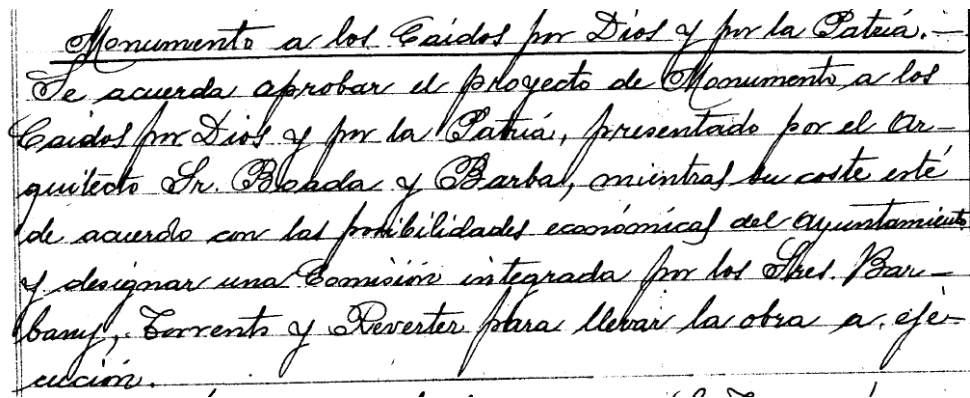 Monumento a los Caidos por Dios y por la Patria.—
Se acuerda aprobar el proyecto de Monumento a los
Caidos por Dios y por la Patria, presentado por el Ar-
quitecto Sr. Boada y Barba, mientras su coste esté
de acuerdo con las posibilidades económicas del Ayuntamiento
y designar una Comisión integrada por los Sres. Bar-
bany, Torrents y Reverter para llevar la obra a eje-
cución.